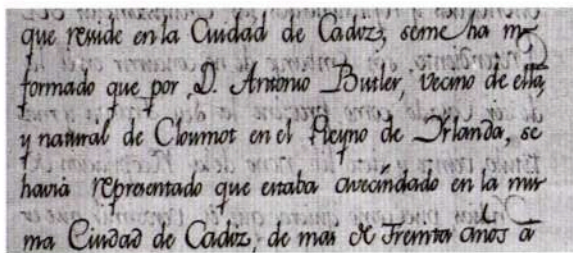 que reside en la Ciudad de Cadiz, seme ha in
formado que por D. Antonio Butler, vecino de ella,
y natural de Cloumot en el Reyno de Irlanda, se
havia representado que estaba avecindado en la mis
ma Ciudad de Cadiz, de mas de treinta años a